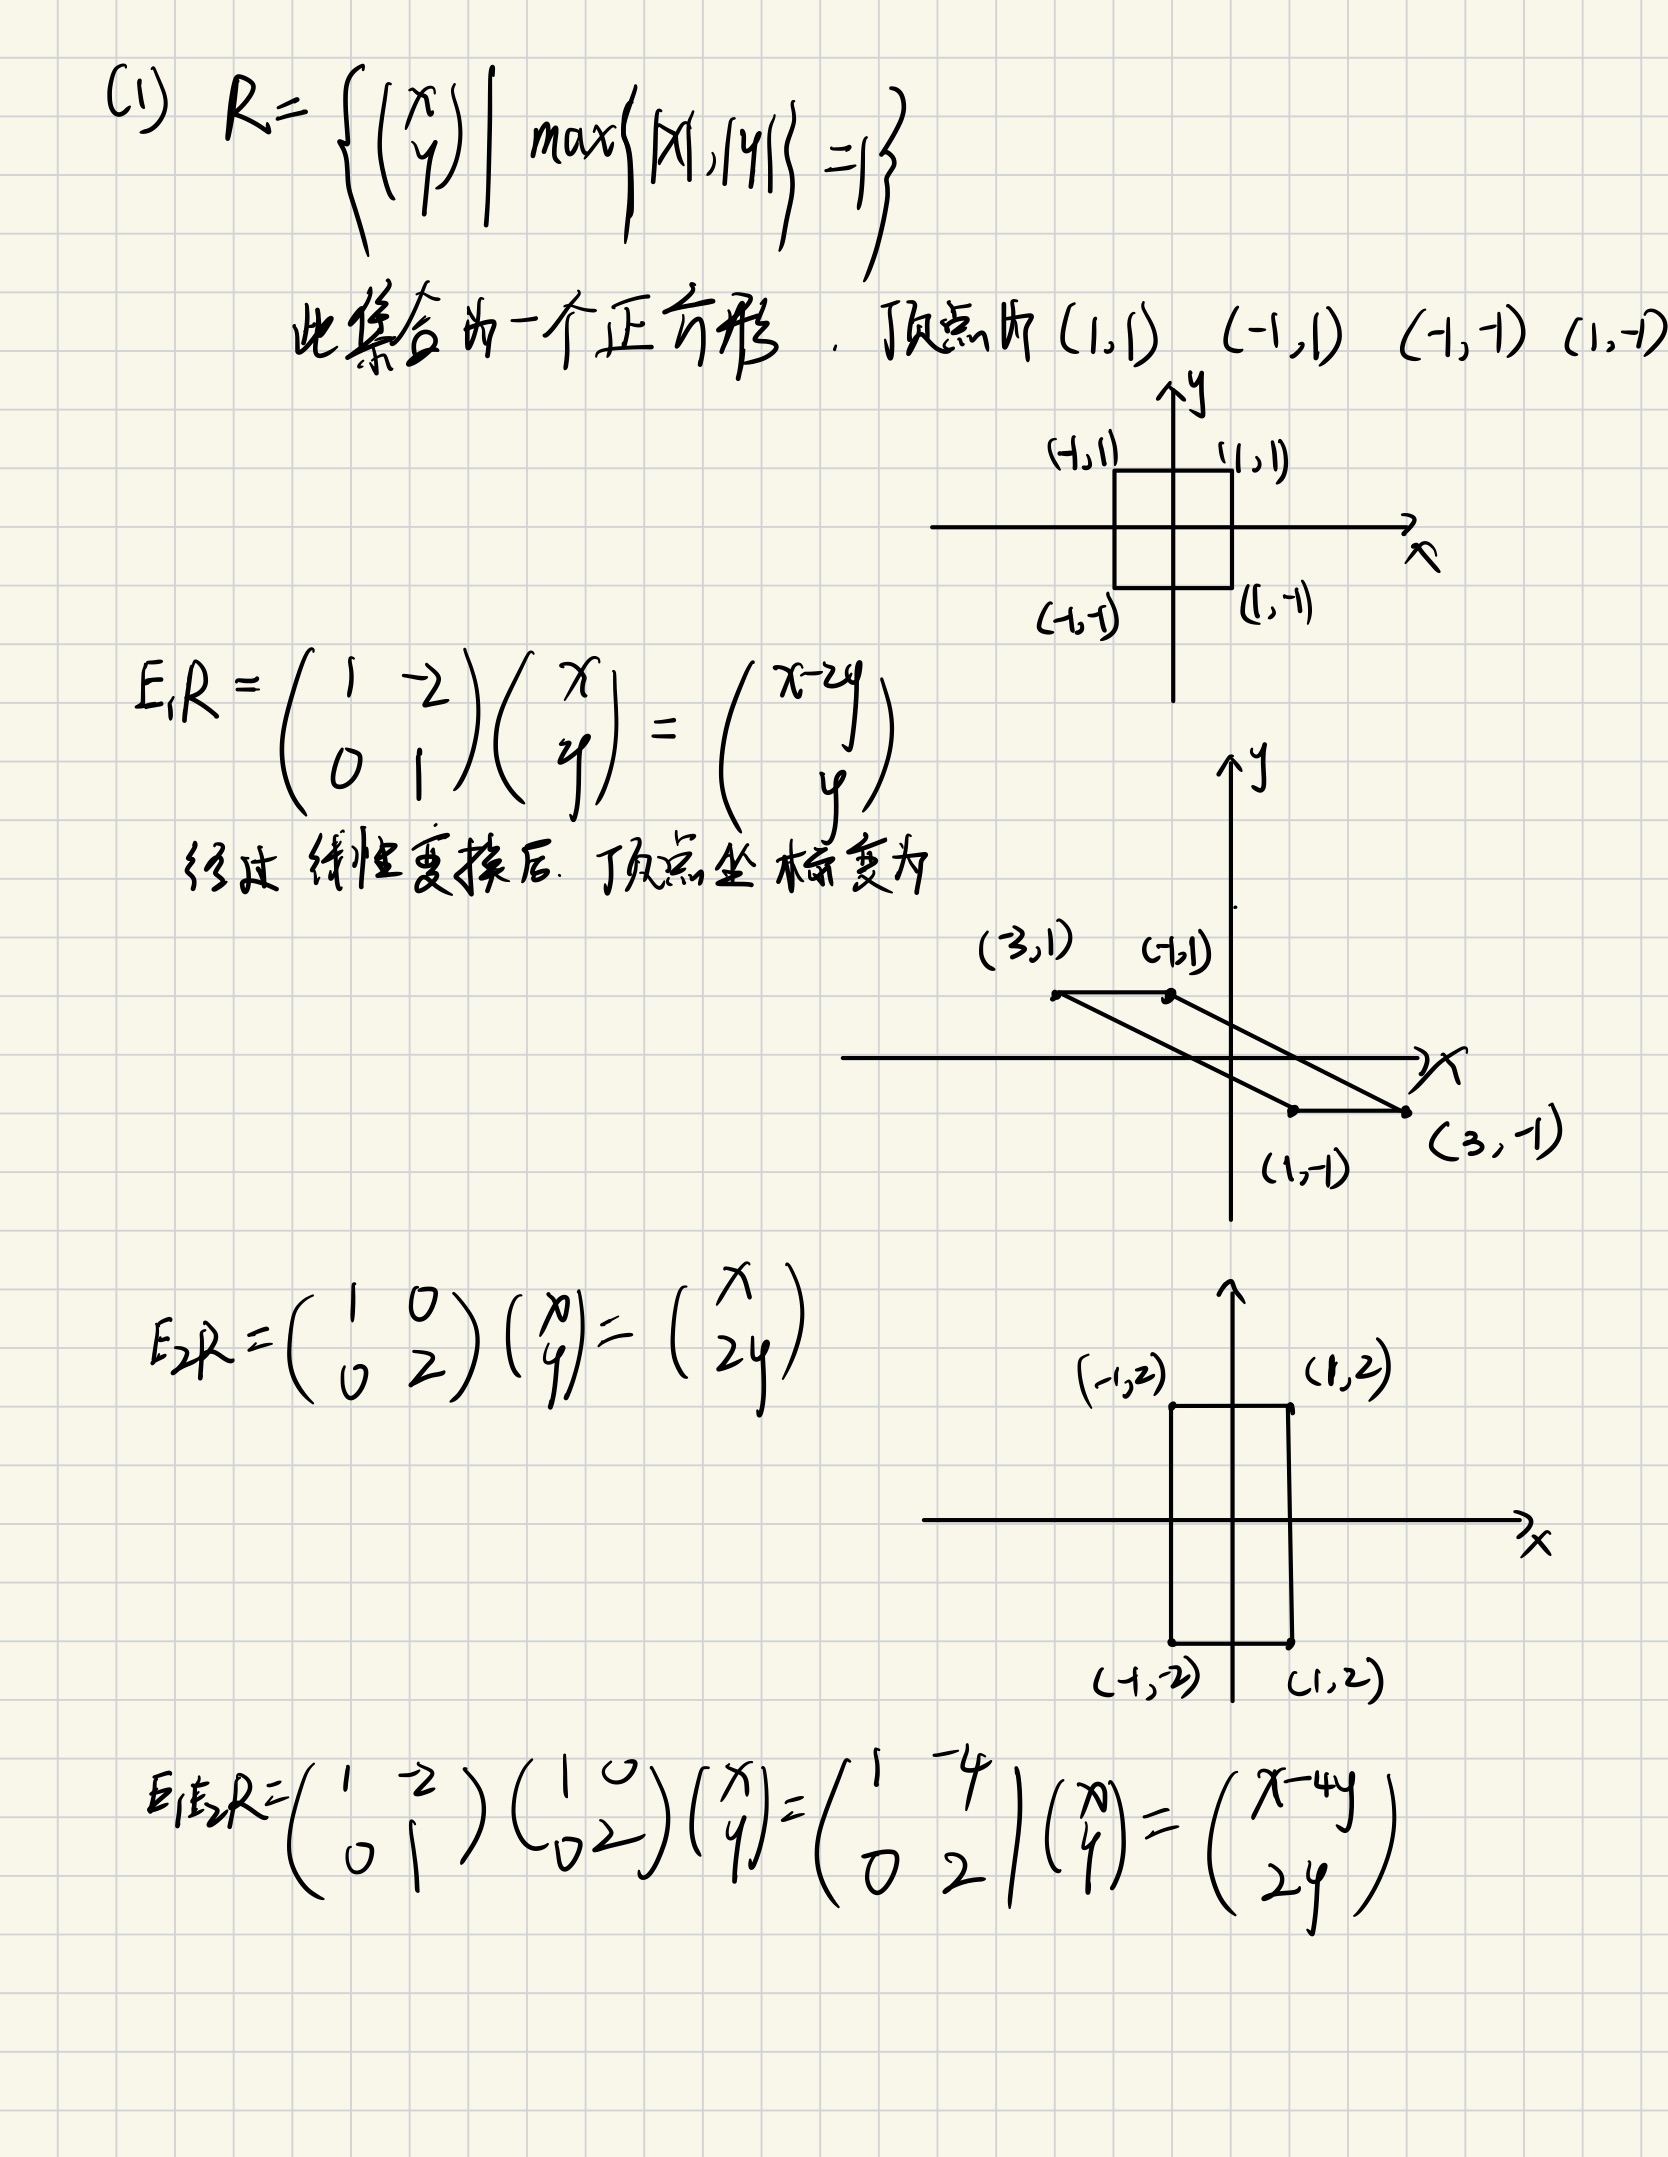 (1) R = { (x y) | max{|x|,|y|} = 1 }
此集合为一个正方形. 顶点为 (1,1) (-1,1) (-1,-1) (1,-1)
y
(-1,1) (1,1)
x
(-1,-1) (1,-1)
E₁R = (1 -2 0 1)(x y) = (x-2y y)
y
经过线性变换后. 顶点坐标变为
(-3,1) (-1,1)
x
(3,-1)
(1,-1)
E₂R = (1 0 0 2)(x y) = (x 2y)
(-1,2) (1,2)
x
(-1,-2) (1,2)
E₁E₂R = (1 -2 0 1)(1 0 0 2)(x y) = (1 -4 0 2)(x y) = (x-4y 2y)